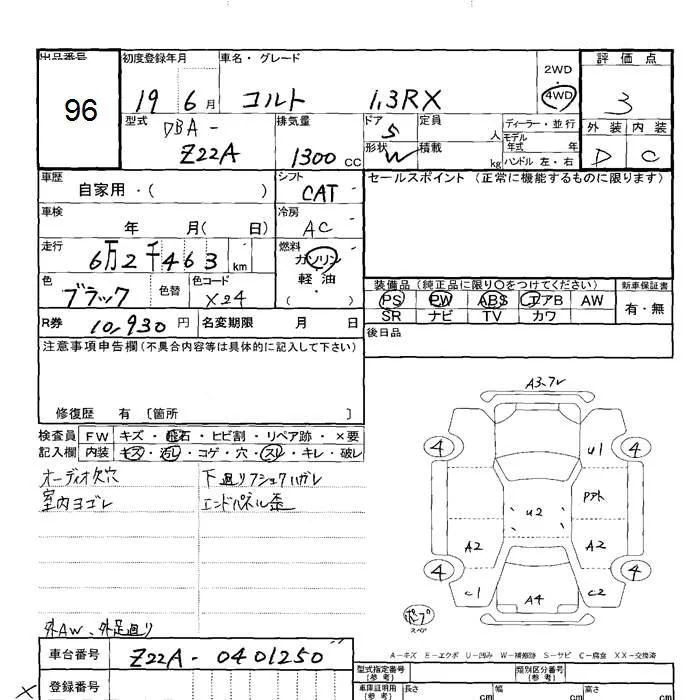 出品番号
96
初度登録年月
19 6月
車名・グレード
コルト 1.3RX
2WD
4WD
評価点
3
外装 内装
D C
型式
DBA-
Z22A
排気量
1300cc
ドア
5
形状
W
定員
人
積載
kg
ディーラー・並行
モデル
年式 年
ハンドル 左・右
車歴
自家用・( )
シフト
CAT
セールスポイント (正常に機能するものに限ります)
車検
年 月( 日)
冷房
AC
走行
6万2千463 km
燃料
ガソリン
軽油
( )
色
ブラック
色替
色コード
X24
装備品(純正品に限り〇をつけてください)
PS PW ABS エアB AW
SR ナビ TV カワ
新車保証書
有・無
R券 10,930円
名変期限 月 日
後日品
注意事項申告欄(不具合内容等は具体的に記入して下さい)
修復歴 有 〔箇所 〕
検査員
記入欄
FW キズ・飛石・ヒビ割・リペア跡・×要
内装 キズ・汚レ・コゲ・穴・スレ・キレ・破レ
オーディオ欠穴
室内ヨゴレ
エンドパネル歪
外AW、外足廻り
車台番号 Z22A-0401250
登録番号
4
4
U1
U2
A2
A2
4
4
C1
A4
C2
スペア
A-キズ E-エクボ U-凹み W-補修跡 S-サビ C-腐食 XX-交換済
型式指定番号
(参考)
類別区分番号
(参考)
車庫証明用
(参考)
長さ cm
幅 cm
高さ cm
×